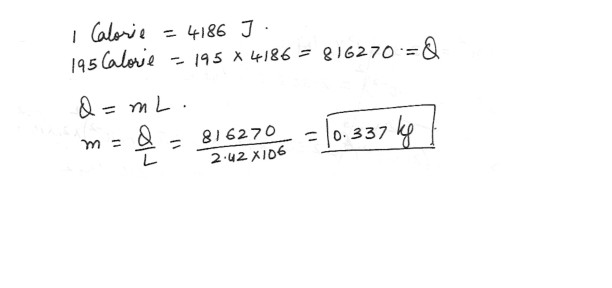 1 Calorie = 4186 J.
195 Calorie = 195 × 4186 = 816270 = Q
Q = mL.
m = Q/L = 816270/2.42×106 = 0.337 kg